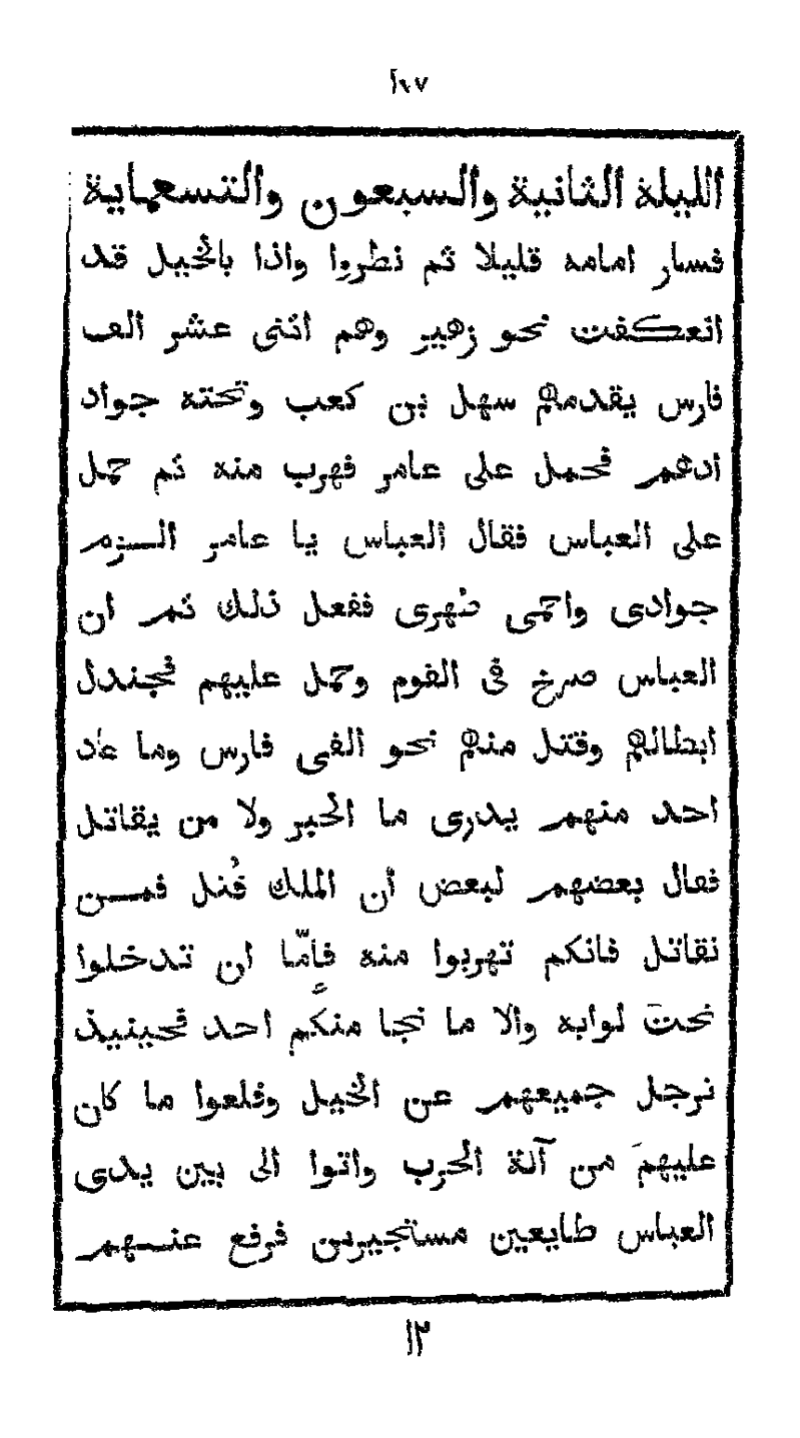 ١٧٧
الليلة الثانية والسبعون والتسعماية
فسار امامه قليلا ثم نظروا واذا بالخيل قد
انعكفت نحو زهير وهم اثنى عشر الف
فارس يقدمهم سهل بن كعب وتحته جواد
ادهم فحمل على عامر فهرب منه ثم حمل
على العباس فقال العباس يا عامر الـزم
جوادى واحمى ضهرى ففعل ذلك ثم ان
العباس صرخ فى القوم وحمل عليهم فجندل
ابطالهم وقتل منهم نحو الفى فارس وما عاد
احد منهم يدرى ما الخبر ولا من يقاتل
فقال بعضهم لبعض أن الملك قُتل فمـن
نقاتل فانكم تهربوا منه فامّا ان تدخلوا
تحت لوايه والّا ما نجا منكم احد فحينيذ
ترجل جميعهم عن الخيل وقلعوا ما كان
عليهم من آلة الحرب واتوا الى بين يدى
العباس طايعين مستجيرين فرفع عنـهم
١٢